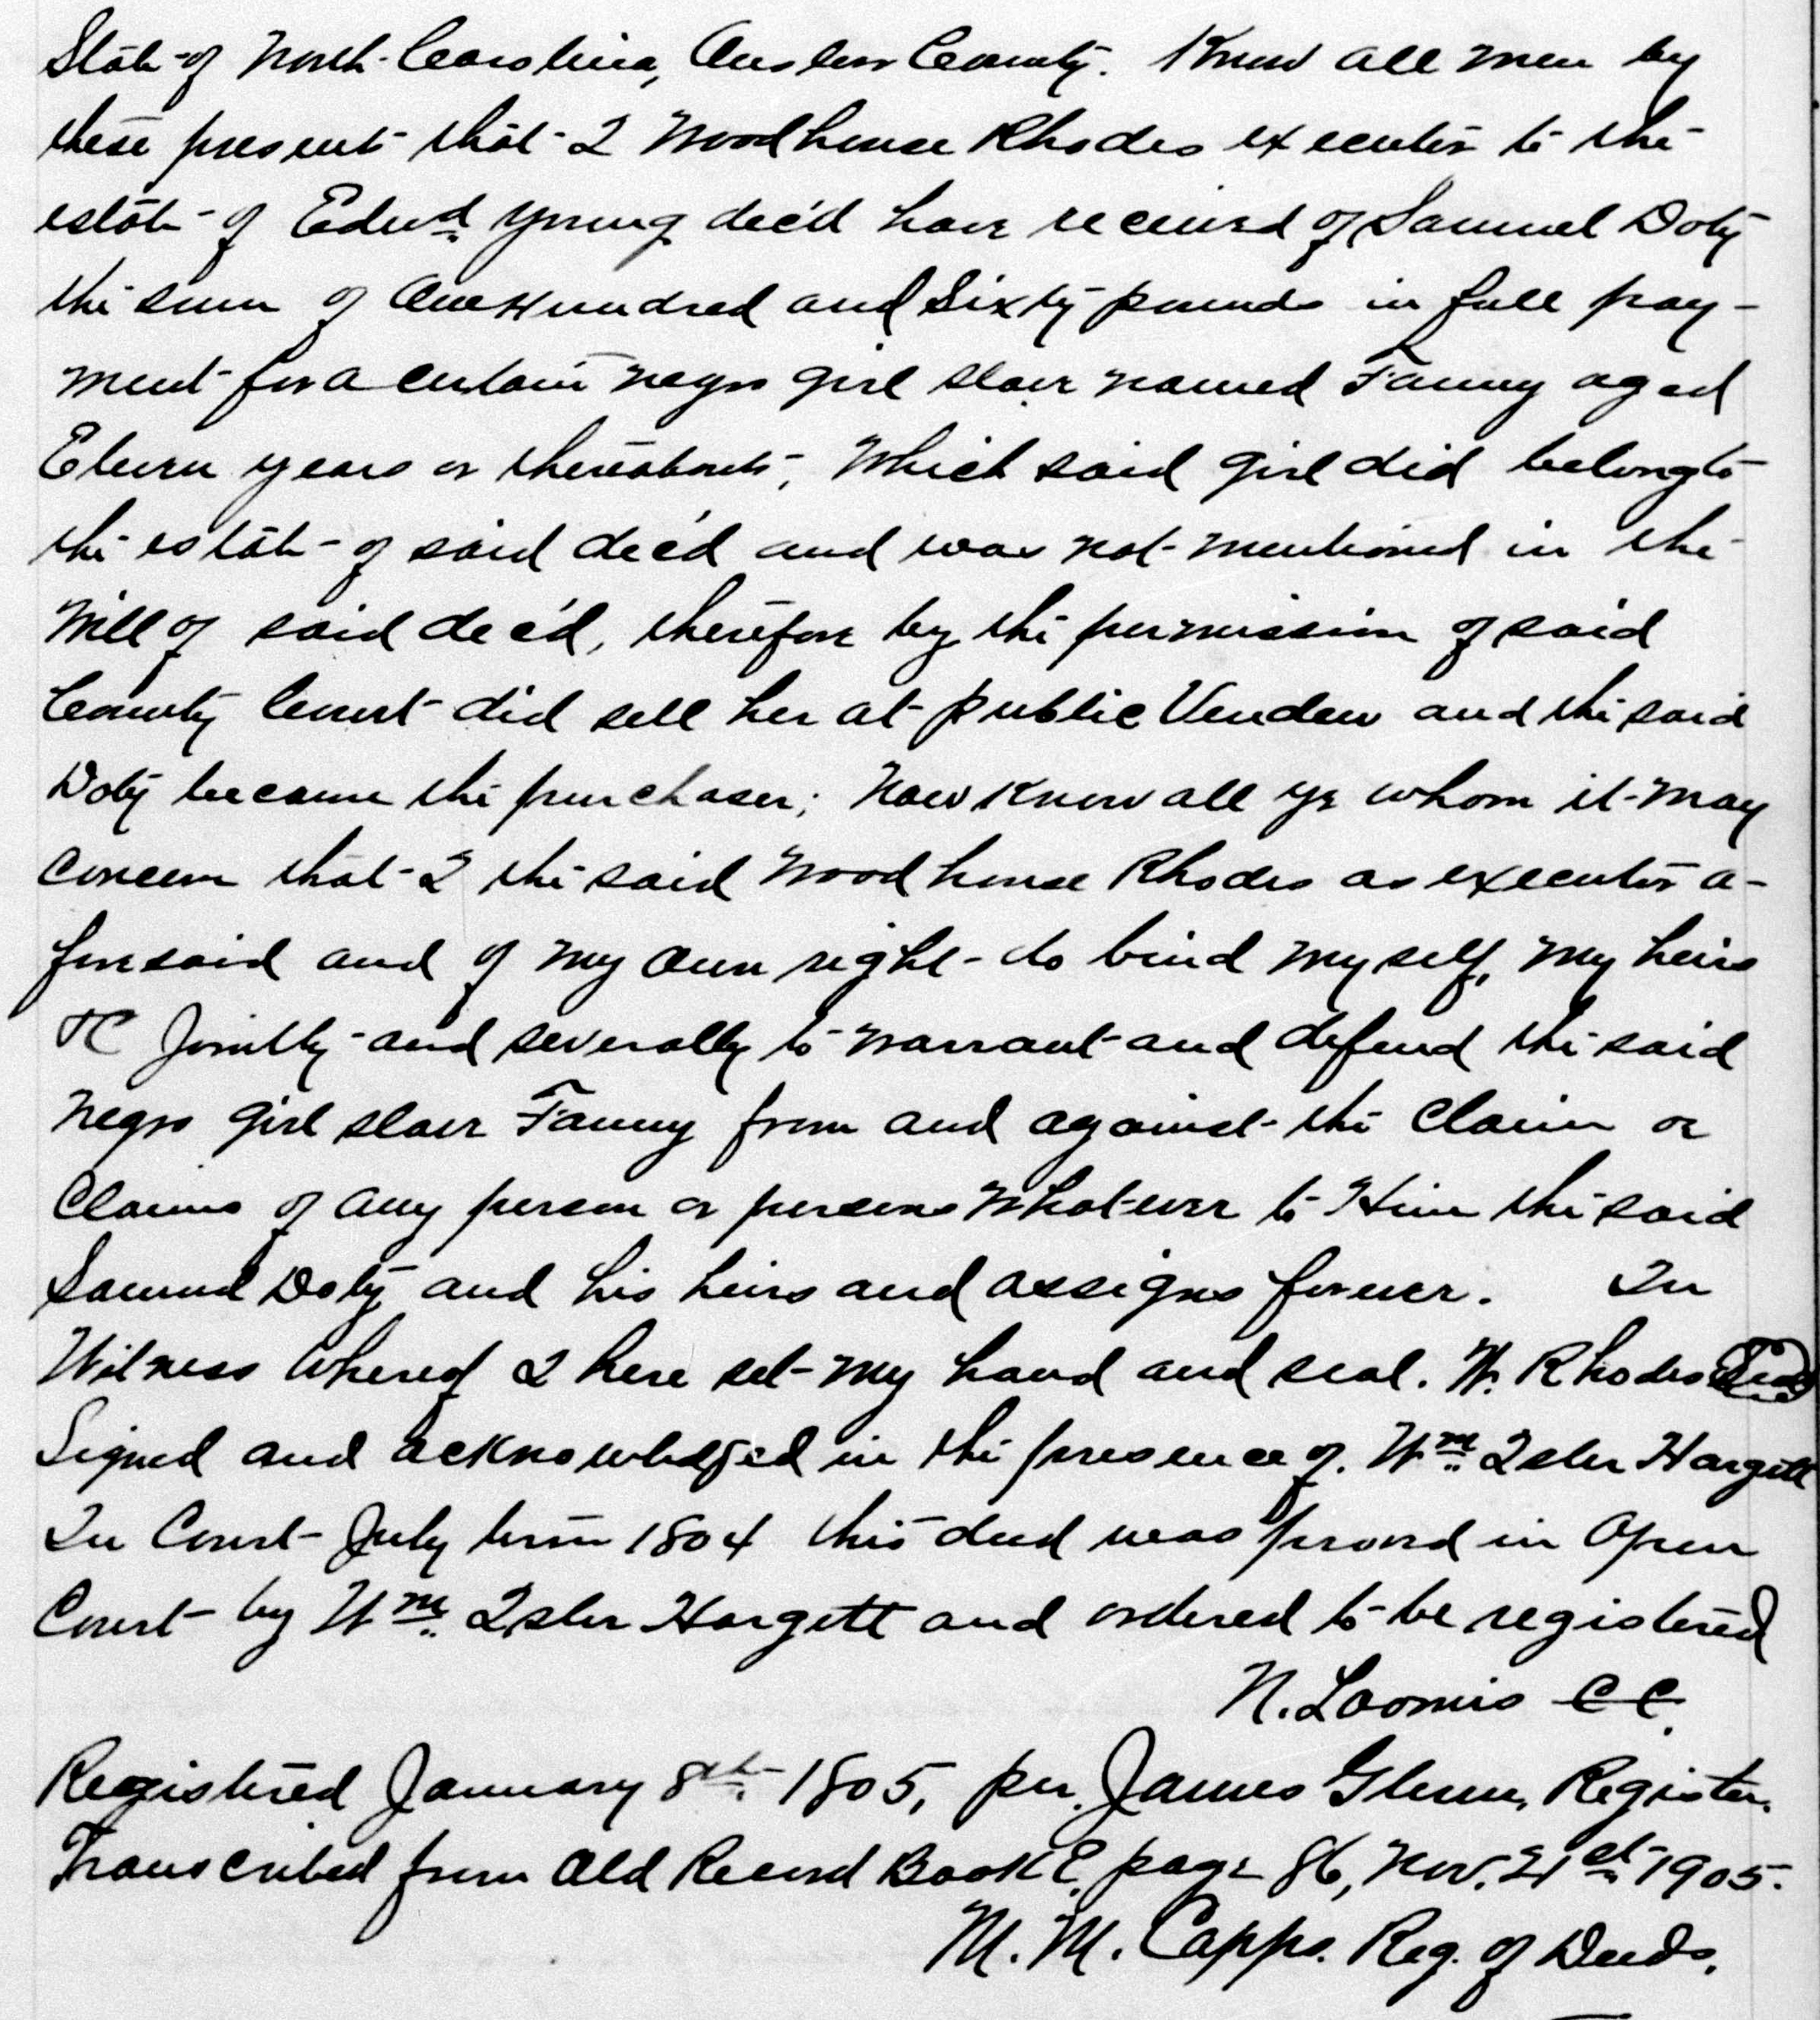 State of North Carolina, Onslow County. Know all men by
these present that I Woodhouse Rhodes executor to the
estate of Edwd. Young dec'd have received of Samuel Doty
the sum of One Hundred and Sixty pounds in full pay-
ment for a certain negro girl slave named Fanny aged
Eleven years or thereabouts, which said girl did belong to
the estate of said dec'd and was not mentioned in the
Will of said dec'd, therefore by the permission of said
County Court did sell her at public Vendew and the said
Doty became the purchaser; Now Know all ye whom it may
concern that I the said Woodhouse Rhodes as executor a-
foresaid and of my own right do bind myself, my heirs
&C Jointly and severally to warrant and defend the said
negro girl slave Fanny from and against the Claim or
Claims of any person or persons whatever to Him the said
Samuel Doty and his heirs and assigns forever. In
Witness whereof I here set my hand and seal. W. Rhodes Seal
Signed and acknowledged in the presence of. Wm. Isler Hargett
In Court July term 1804 this deed was proved in Open
Court by Wm. Isler Hargett and ordered to be registered
N. Loomis CC.
Registered January 8th. 1805, per. James Glenn, Register.
Transcribed from Old Record Book E, page 86, Nov. 21st 1905.
M. M. Capps. Reg. of Deeds.